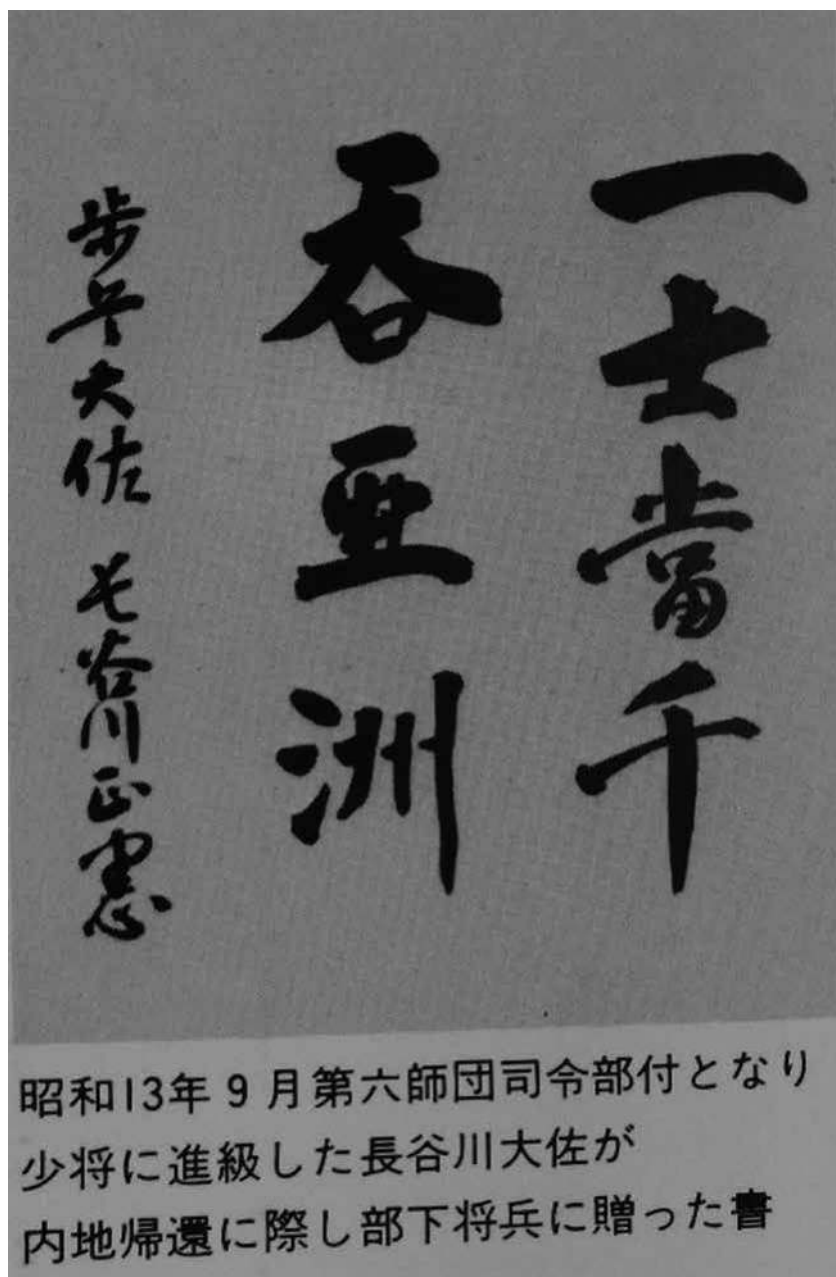 一士當千
呑亞洲
歩兵大佐 長谷川正憲
昭和13年9月第六師団司令部付となり
少将に進級した長谷川大佐が
内地帰還に際し部下将兵に贈った書